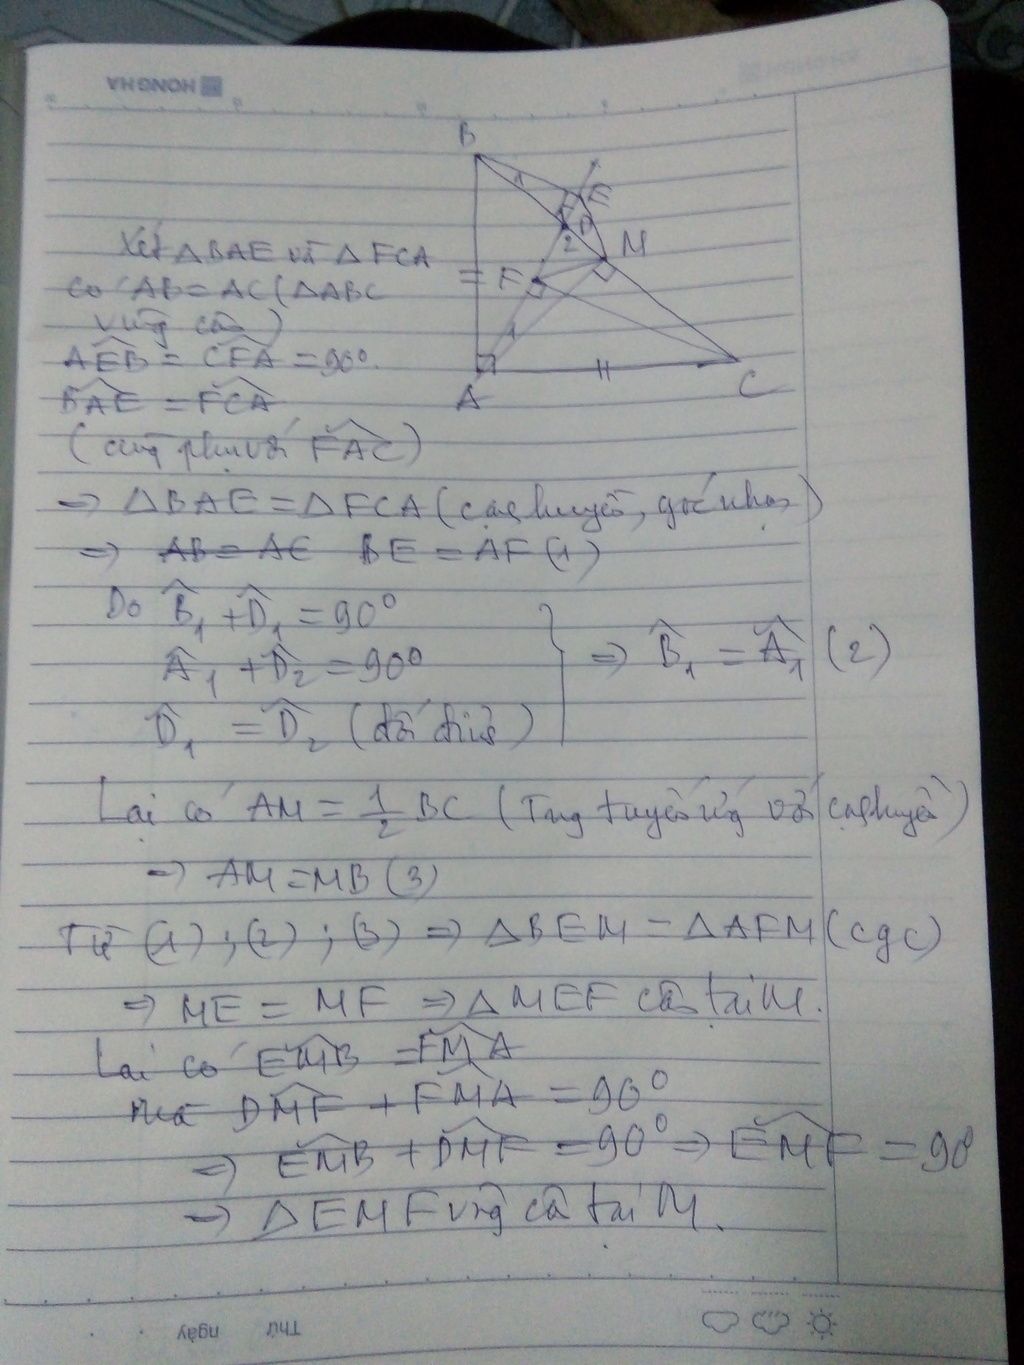 HONGHA
B
E
1
D
2
M
F
1
A
C
Xét △BAE và △FCA
có AB = AC (△ABC
vuông cân)
AEB = CFA = 90°.
BAE = FCA
(cùng phụ với FAC)
=> △BAE = △FCA (cạnh huyền, góc nhọn)
=> AB = AC BE = AF (1)
Do B̂₁ + D̂₁ = 90°
Â₁ + D̂₂ = 90°
D̂₁ = D̂₂ (đối đỉnh)
=> B̂₁ = Â₁ (2)
Lại có AM = 1/2 BC (Trung tuyến ứng với cạnh huyền)
=> AM = MB (3)
Từ (1); (2); (3) => △BEM = △AFM (cgc)
=> ME = MF => △MEF cân tại M.
Lại có EMB = FMA
mà DMF + FMA = 90°
=> EMB + DMF = 90° => EMF = 90°
=> △EMF vuông cân tại M.
Thứ ngày